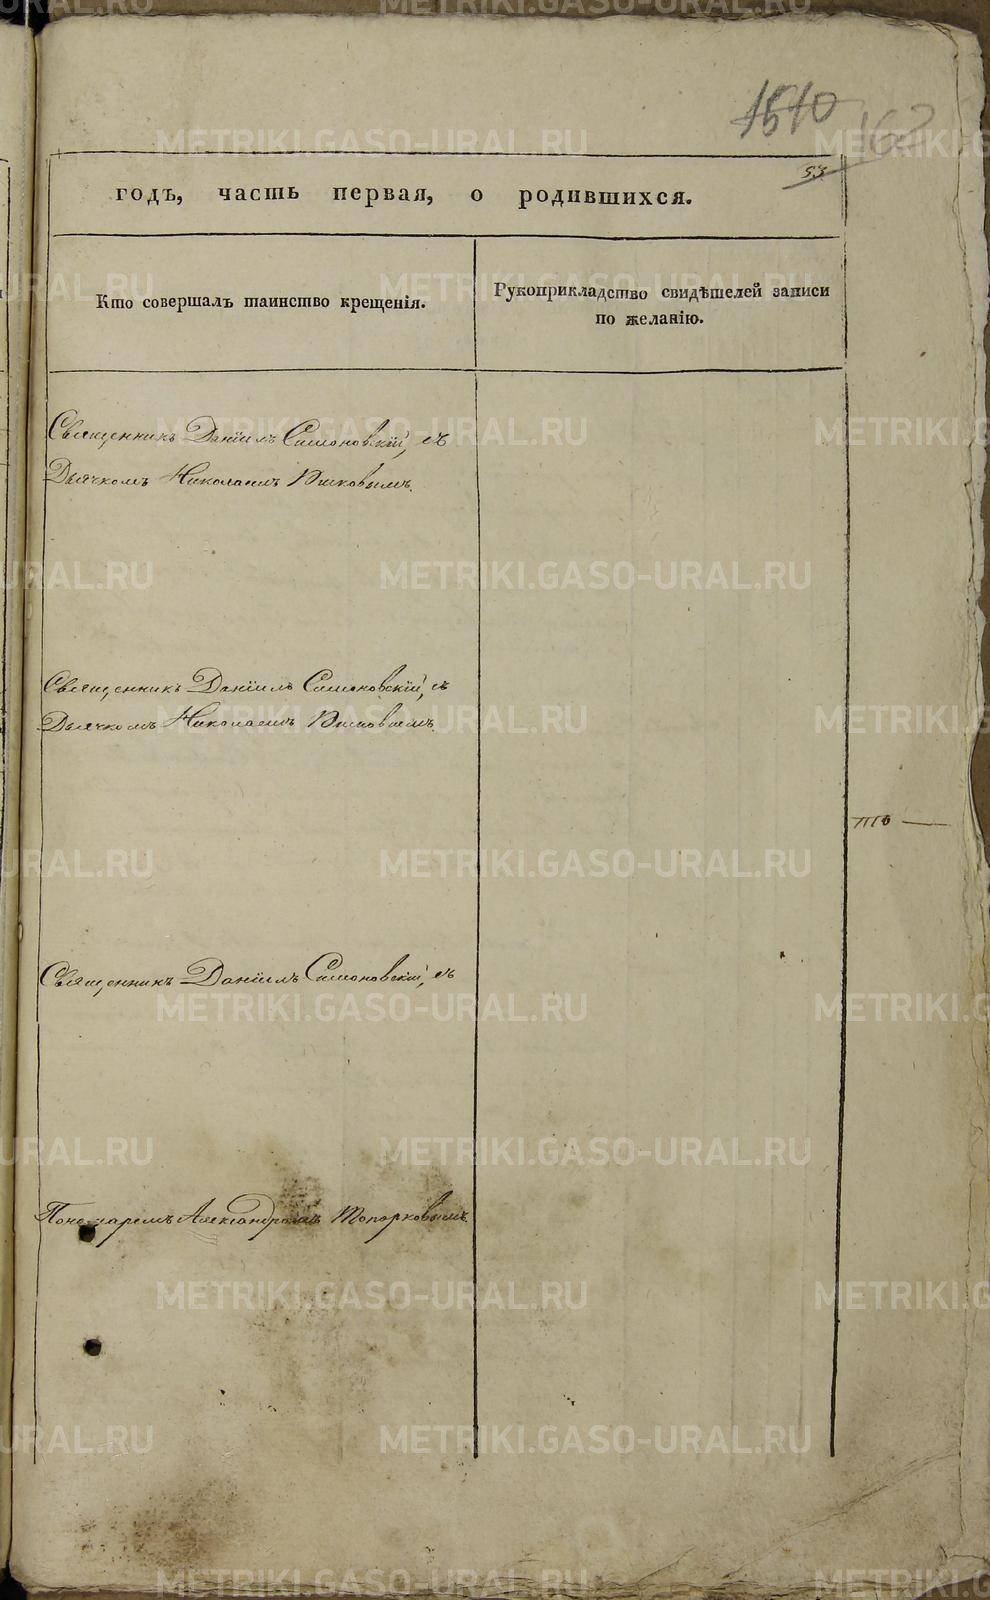 1510
162
53
годъ, часть первая, о родившихся.
Кто совершалъ таинство крещенія.
Рукоприкладство свидѣтелей записи
по желанію.
Священникъ Даніилъ Симоновскій, съ
Дьячкомъ Николаемъ
Священникъ Даніилъ Симоновскій, съ
Дьячкомъ Николаемъ
Священникъ Даніилъ Симоновскій, съ
Пономаремъ Александромъ Топорковымъ.
METRIKI.GASO-URAL.RU